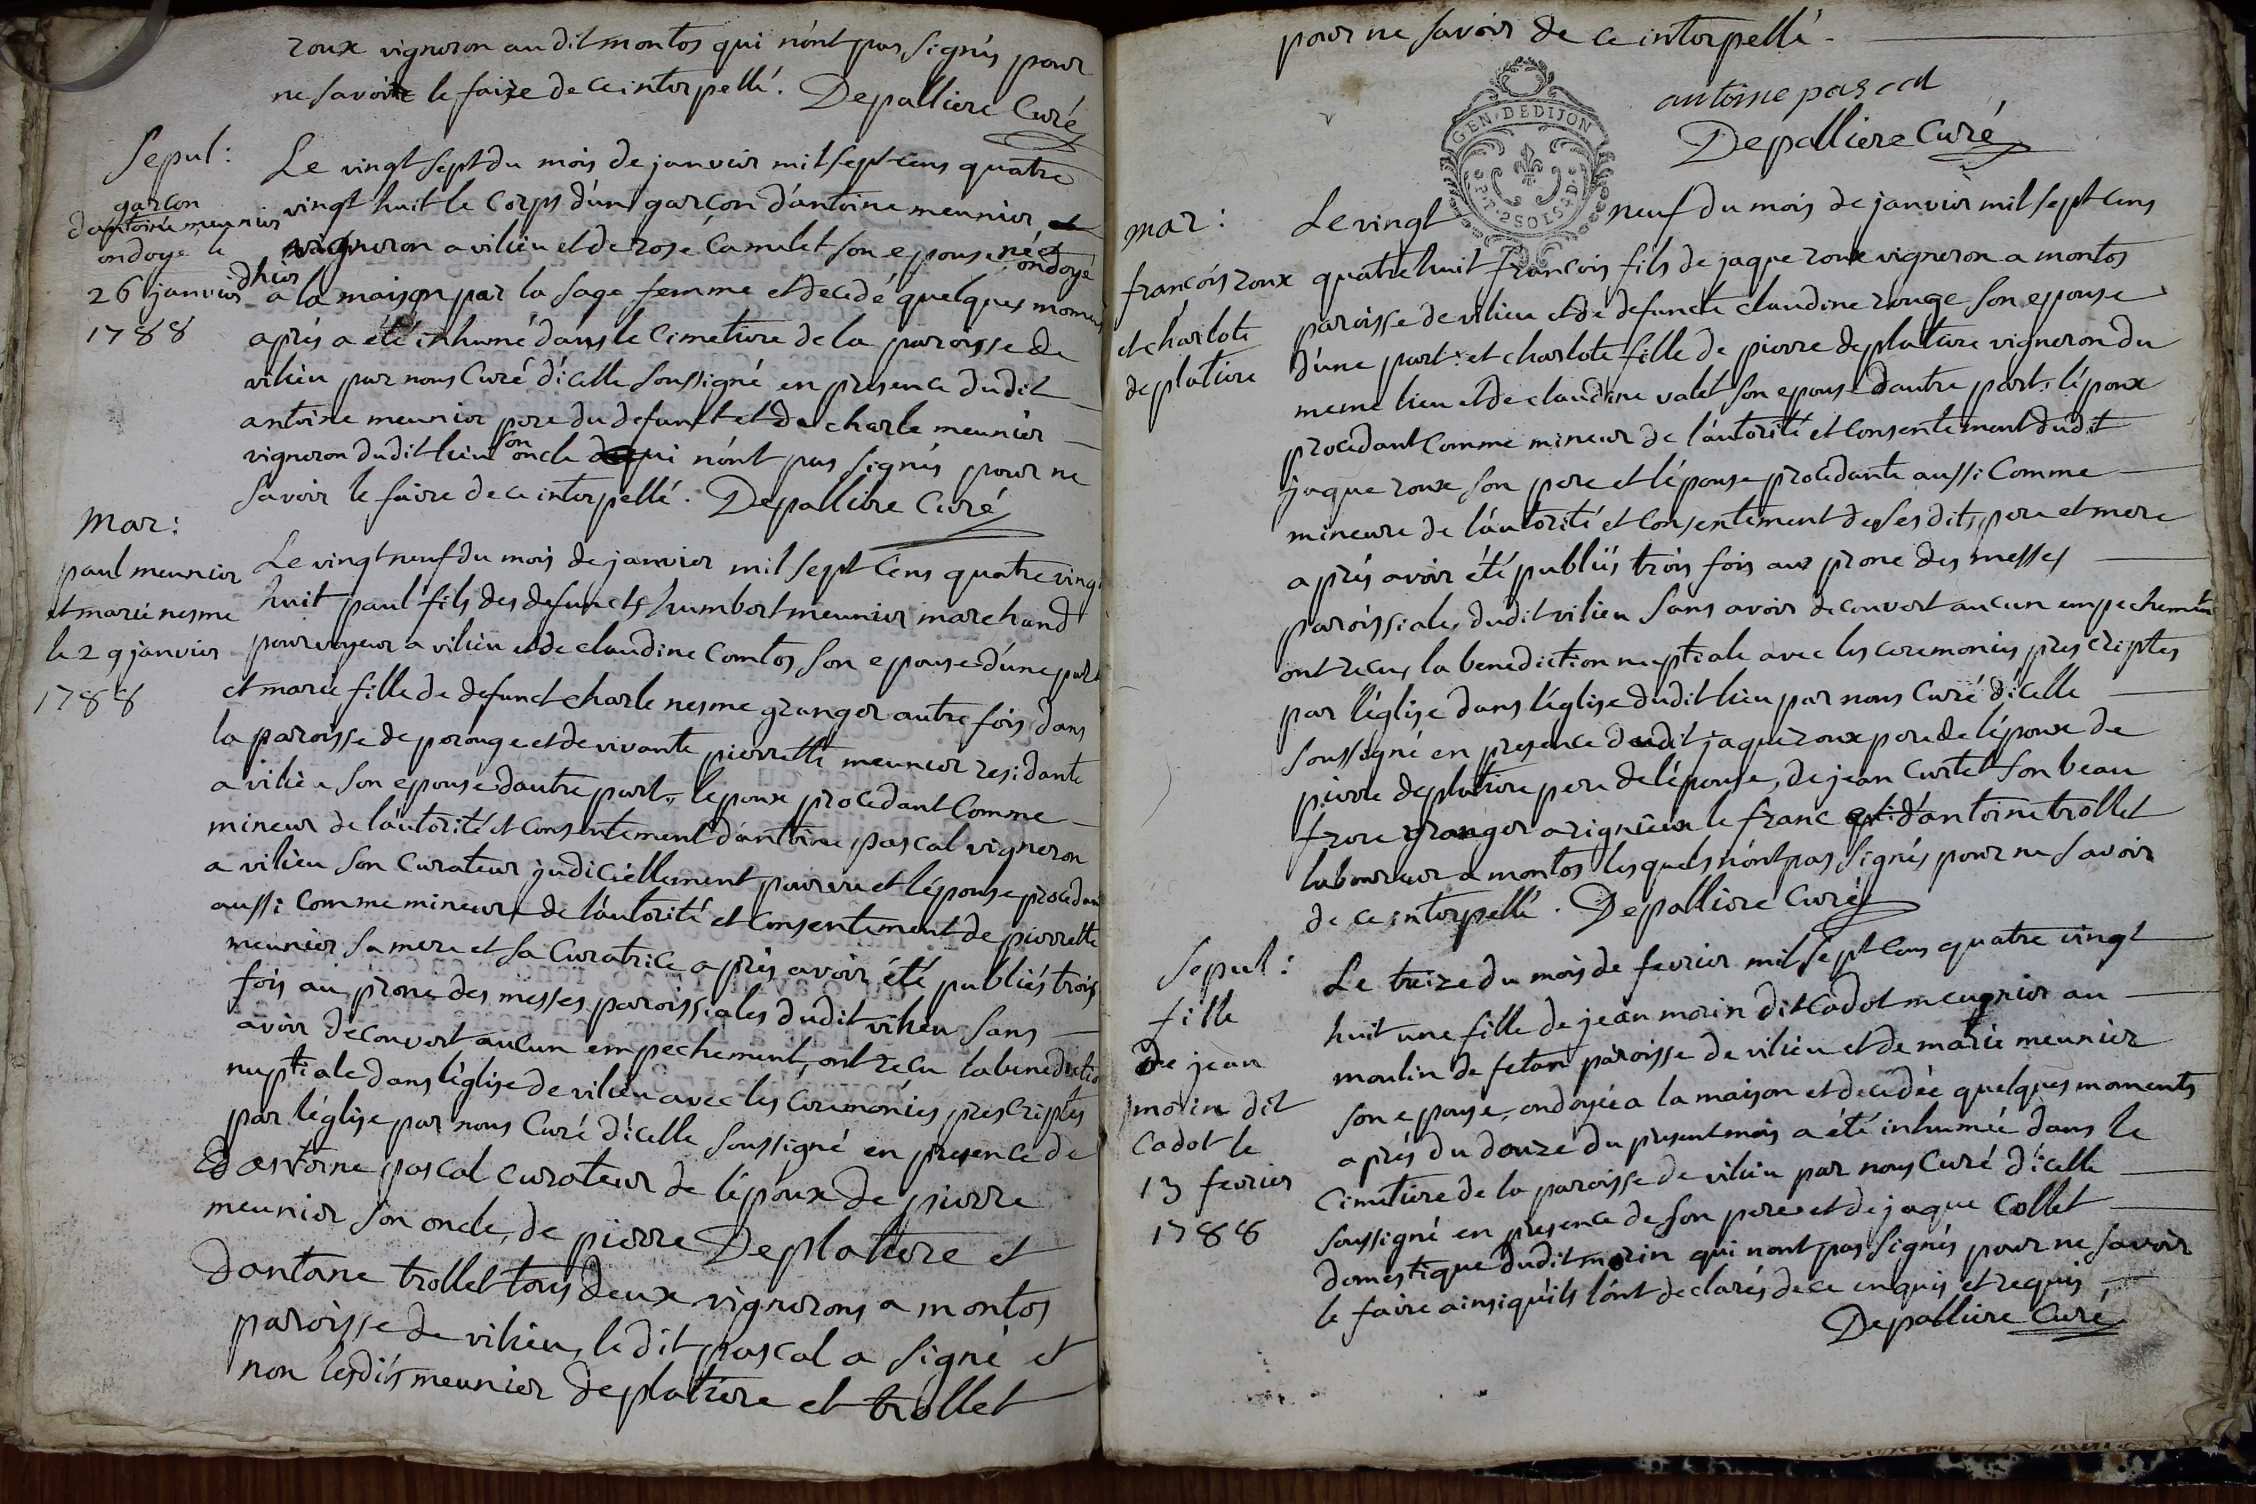 roux vigneron audit montos qui n'ont pas signés pour
ne savoir le faire de ce interpellé. Depalliere Curé
Sepul:
garçon
d'antoine meunier
ondoyé le
26 janvier
1788
Le vingt sept du mois de janvier mil sept cens quatre
vingt huit le corps d'un garçon d'antoine meunier
vigneron a vilieu et de rose Camulet son epouse né et ondoyé
dhier a la maison par la sage femme et decedé quelques momens
aprés a été inhumé dans le cimetiere de la paroisse de
vilieu par nous Curé d'icelle soussigné en presence dudit
antoine meunier pere du defunct et de charle meunier
vigneron dudit lieu son oncle qui n'ont pas signés pour ne
savoir le faire de ce interpellé. Depalliere Curé
Mar:
paul meunier
et marie nesme
le 29 janvier
1788
Le vingt neuf du mois de janvier mil sept cens quatre vingt
huit paul fils des defuncts humbert meunier marchand
pourvoyeur a vilieu et de claudine Comtos son epouse d'une part
et marie fille de defunct charle nesme granger autre fois dans
la paroisse de perouge et de vivante pierrette meunier residante
a vilieu son epouse d'autre part, l'epoux procedant Comme
mineur de l'autorité et consentement d'antoine pascal vigneron
a vilieu son curateur judiciellement pourvu et l'épouse procedant
aussi comme mineure de l'autorité et consentement de pierrette
meunier sa mere et sa Curatrice aprés avoir été publiés trois
fois au prone des messes paroissiales dudit vilieu sans
avoir decouvert aucun empechement, ont recu la benediction
nuptiale dans l'église de vilieu avec les ceremonies prescriptes
par l'église par nous Curé d'icelle soussigné en presence de
antoine pascal curateur de l'époux de pierre
meunier son oncle, de pierre Deplatiere et
dantoine trollet tous deux vignerons a montos
paroisse de vilieu, le dit pascal a signé et
non lesdits meunier deplatiere et trollet
pour ne savoir de ce interpellé.
antoine pascal
Depalliere Curé
GEN. DE DIJON
mar:
françois roux
et charlote
deplatiere
Le vingt neuf du mois de janvier mil sept cens
quatre huit francois fils de jaque roux vigneron a montos
paroisse de vilieu et de defuncte claudine rouge son epouse
d'une part: et charlote fille de pierre deplatiere vigneron du
meme lieu et de claudine valet son epouse d'autre part, l'époux
procedant comme mineur de l'autorité et consentement dudit
jaque roux son pere et l'épouse procedante aussi Comme
mineure de l'autorité et consentement de ses dits pere et mere
aprés avoir été publiés trois fois aux prone des messes
paroissiales dudit vilieu sans avoir decouvert aucun empechement
ont recus la benediction nuptiale avec les ceremonies prescriptes
par l'église dans l'église dudit lieu par nous Curé d'icelle
soussigné en presence dudit jaque roux pere de l'époux de
pierre deplatiere pere de l'épouse, de jean Curtet son beau
frere granger a rignieux le franc d'antoine trollet
laboureur a montos lesquels n'ont pas signés pour ne savoir
de ce interpellé. Depalliere Curé
Sepul:
fille
De jean
morin dit
Cadot le
13 fevrier
1788
Le treize du mois de fevrier mil sept cens quatre vingt
huit une fille de jean morin dit Cadot meugnier au
moulin de fetan paroisse de vilieu et de marie meunier
son epouse, ondoyée a la maison et decedée quelques moments
aprés du douze du present mois a été inhumée dans le
cimetiere de la paroisse de vilieu par nous Curé d'icelle
soussigné en presence de son pere et de jaque Collet
domestique dudit morin qui n'ont pas signés pour ne savoir
le faire ainsi qu'ils l'ont declarés de ce enquis et requis
Depalliere Curé